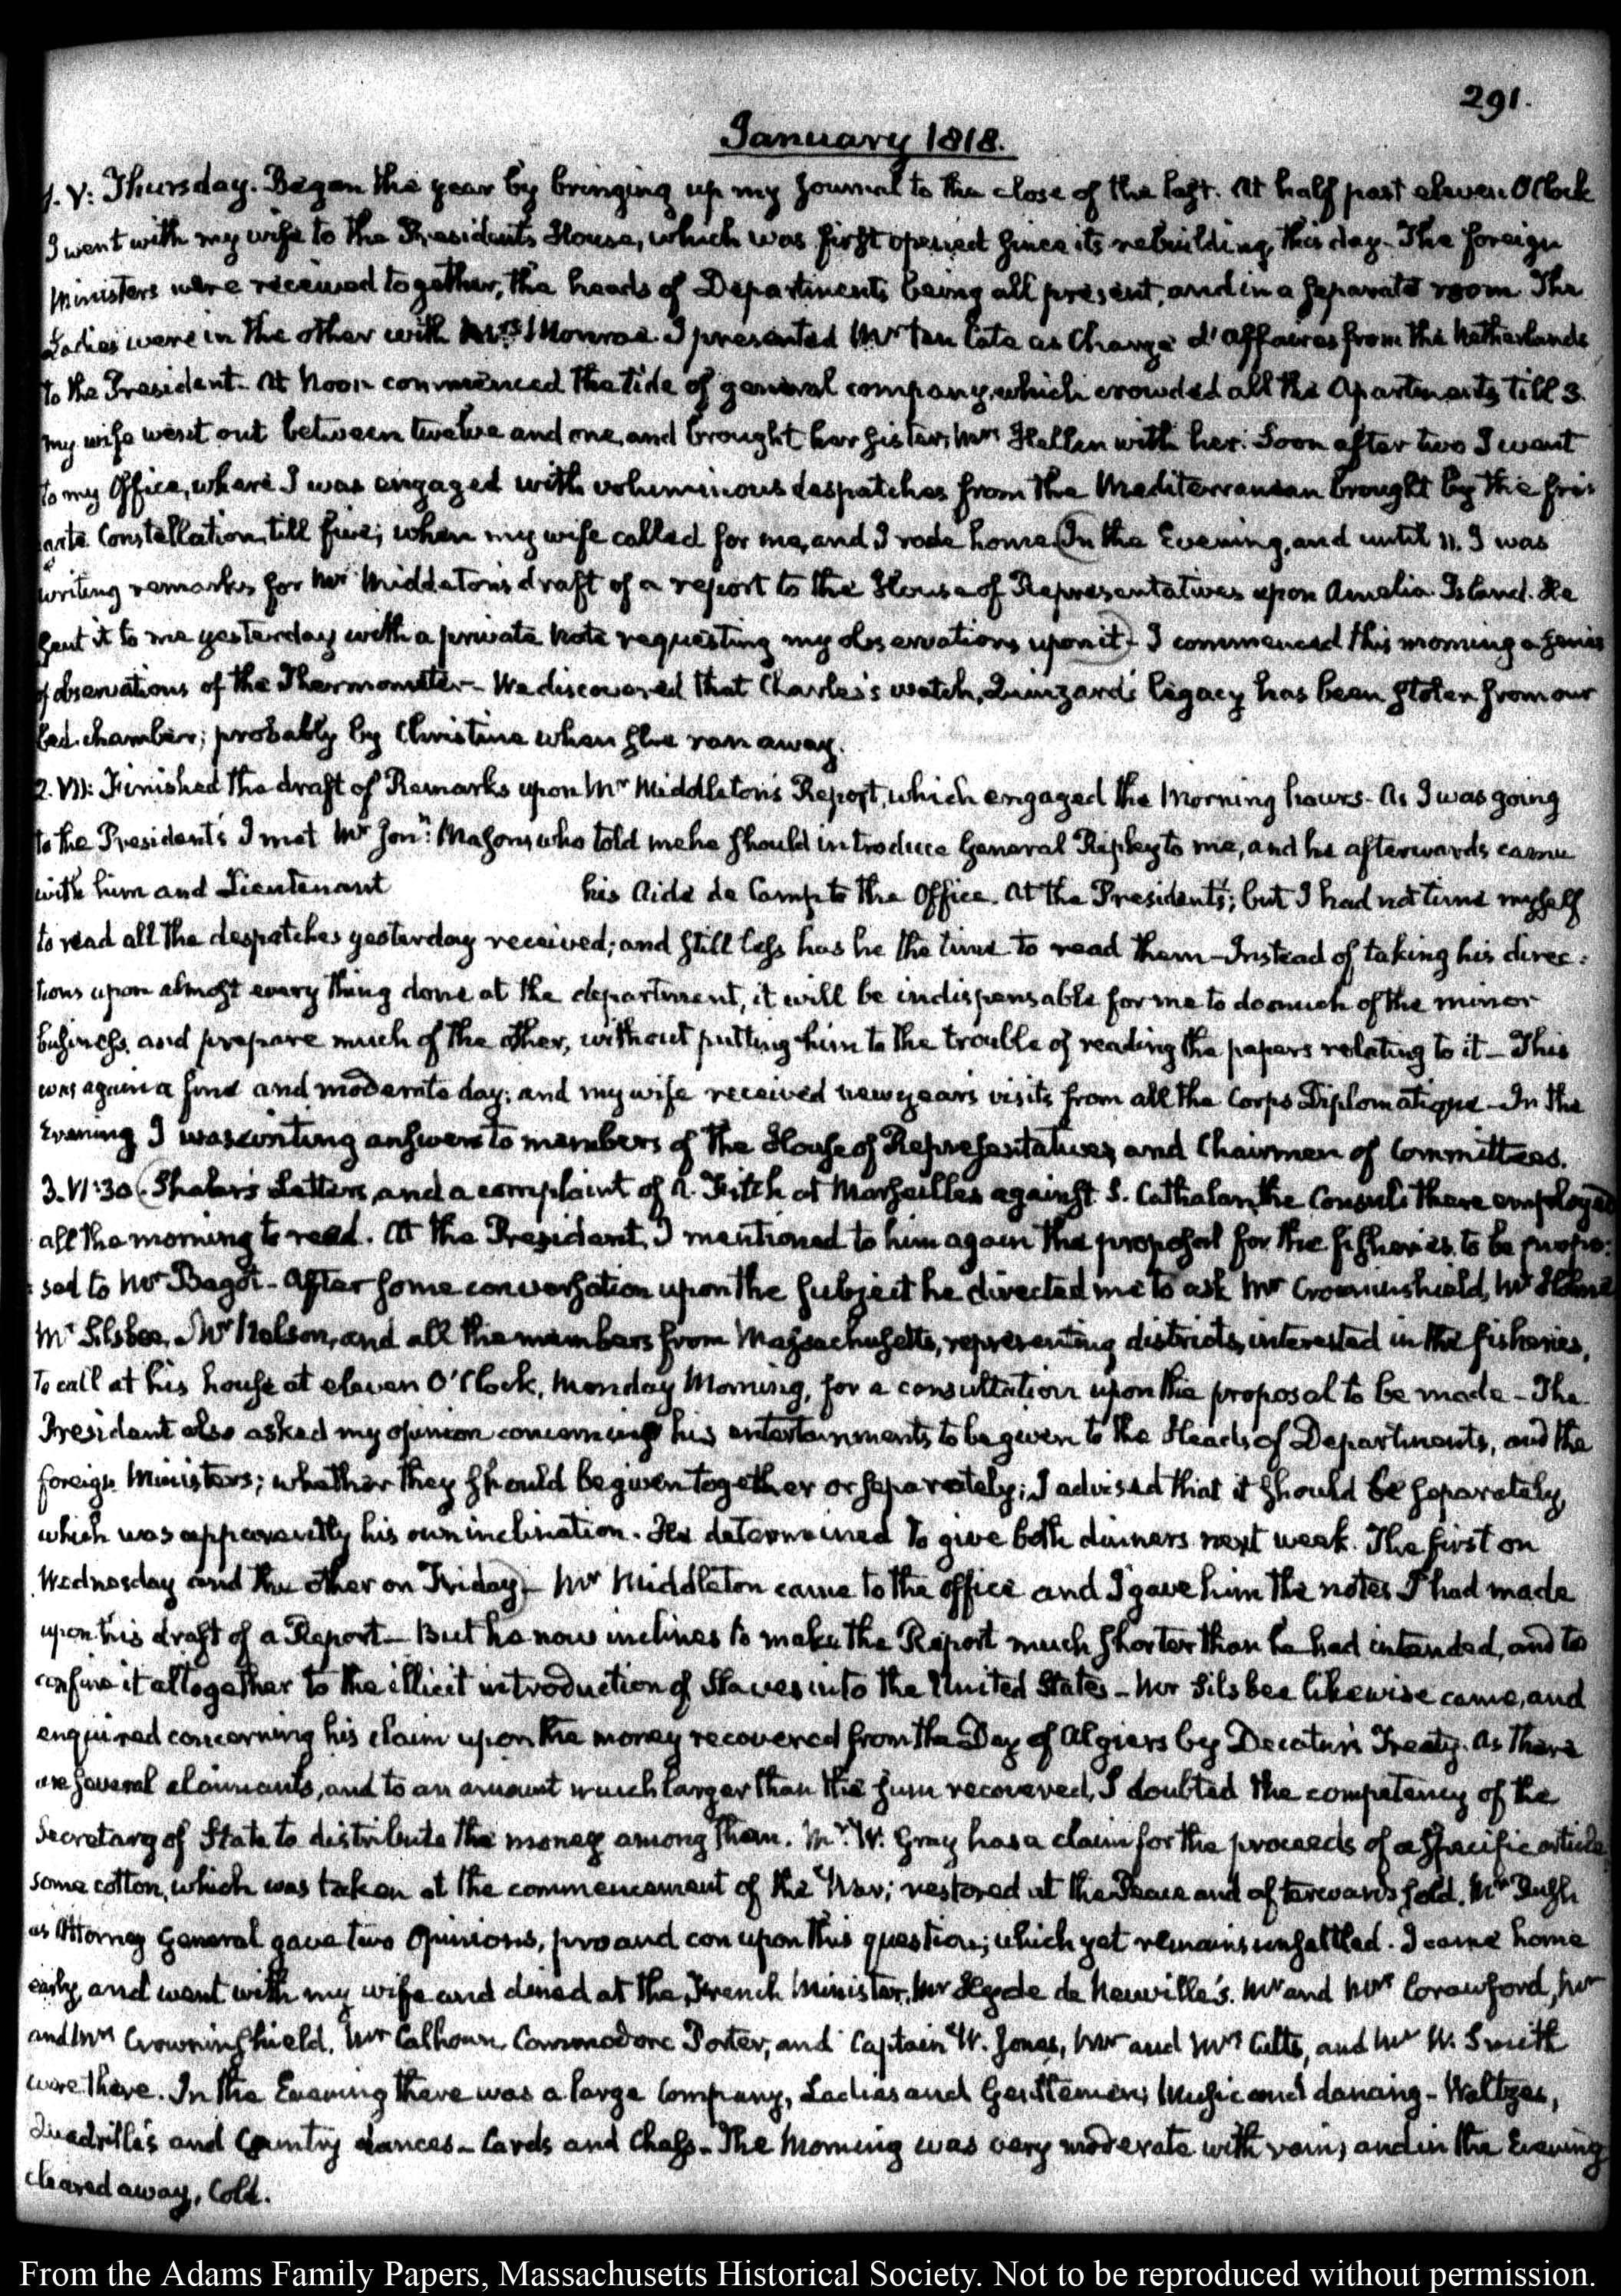 291.
January 1818.
1. V: Thursday. Began the year by bringing up my Journal to the close of the last. At half past eleven O'Clock
I went with my wife to the President's House, which was first opened since its rebuilding, this day. The foreign
Ministers were received together, the heads of Departments being all present, and in a separate room. The
Ladies were in the other with Mrs. Monroe. I presented Mr Ten Cate as Chargé d'affaires from the Netherlands
to the President. At Noon commenced the tide of general company, which crowded all the Apartments till 3.
my wife went out between twelve and one, and brought her sister, Mrs Hellen with her. Soon after two I went
to my Office, where I was engaged with voluminous despatches from the Mediterranean brought by the fri-
gate Constellation, till five; when my wife called for me, and I rode home. In the Evening, and until 11. I was
writing remarks for Mr Middleton's draft of a report to the House of Representatives upon Amelia Island. He
sent it to me yesterday with a private Note requesting my observations upon it - I commenced this morning a series
of observations of the Thermometer - We discovered that Charles's watch, Quinzard's legacy has been stolen from our
bed-chamber; probably by Christine when she ran away.
2. VI: Finished the draft of Remarks upon Mr Middleton's Report, which engaged the Morning hours. As I was going
to the President's I met Mr Jonn: Mason, who told me he should introduce General Ripley to me, and he afterwards came
with him and Lieutenant his Aide de Camp to the Office. At the President's; but I had not time myself
to read all the despatches yesterday received; and still less has he the time to read them - Instead of taking his direc:
tions upon almost every thing done at the department, it will be indispensable for me to do much of the minor
business, and prepare much of the other, without putting him to the trouble of reading the papers relating to it - This
was again a fine and moderate day; and my wife received new year's visits from all the Corps Diplomatique - In the
Evening I was writing answers to members of the House of Representatives, and Chairmen of Committees.
3. VI:30. Shaler's Letters, and a complaint of A. Fitch at Marseilles against S. Cathalan, the Consul there employed
all the morning to read. At the President, I mentioned to him again the proposal for the fisheries to be propo:
:sed to Mr Bagot - After some conversation upon the subject he directed me to ask Mr Crowninshield, Mr Holmes
Mr Silsbee, Mr Nelson, and all the members from Massachusetts, representing districts, interested in the fisheries,
to call at his house at eleven O'Clock, Monday Morning, for a consultation upon the proposal to be made - The
President also asked my opinion concerning his entertainments to be given to the Heads of Departments, and the
foreign Ministers; whether they should be given together or separately; I advised that it should be separately,
which was apparently his own inclination. He determined to give both dinners next week. The first on
Wednesday and the other on Friday - Mr Middleton came to the office and I gave him the notes I had made
upon his draft of a Report - But he now inclines to make the Report much shorter than he had intended, and to
confine it altogether to the illicit introduction of Slaves into the United States - Mr Silsbee likewise came, and
enquired concerning his claim upon the money recovered from the Dey of Algiers by Decatur's Treaty. As there
are several claimants, and to an amount much larger than the sum recovered, I doubted the competency of the
Secretary of State to distribute the money among them. Mr. W. Gray has a claim for the proceeds of a specific article
some cotton, which was taken at the commencement of the War; restored at the Peace and afterwards sold. Mr Rush
as Attorney General gave two Opinions, pro and con upon this question; which yet remains unsettled. I came home
early, and went with my wife and dined at the French Minister, Mr Hyde de Neuville's. Mr and Mrs Crawford, Mr
and Mrs Crowninshield, Mr Calhoun, Commodore Porter, and Captain W. Jones, Mr and Mrs Cutts, and Mr W. Smith
were there. In the Evening there was a large Company, Ladies and Gentlemen; Music and dancing - Waltzes,
Quadrille's and Country dances - Cards and Chess - The Morning was very moderate with rain; and in the Evening
cleared away, Cold.
From the Adams Family Papers, Massachusetts Historical Society. Not to be reproduced without permission.